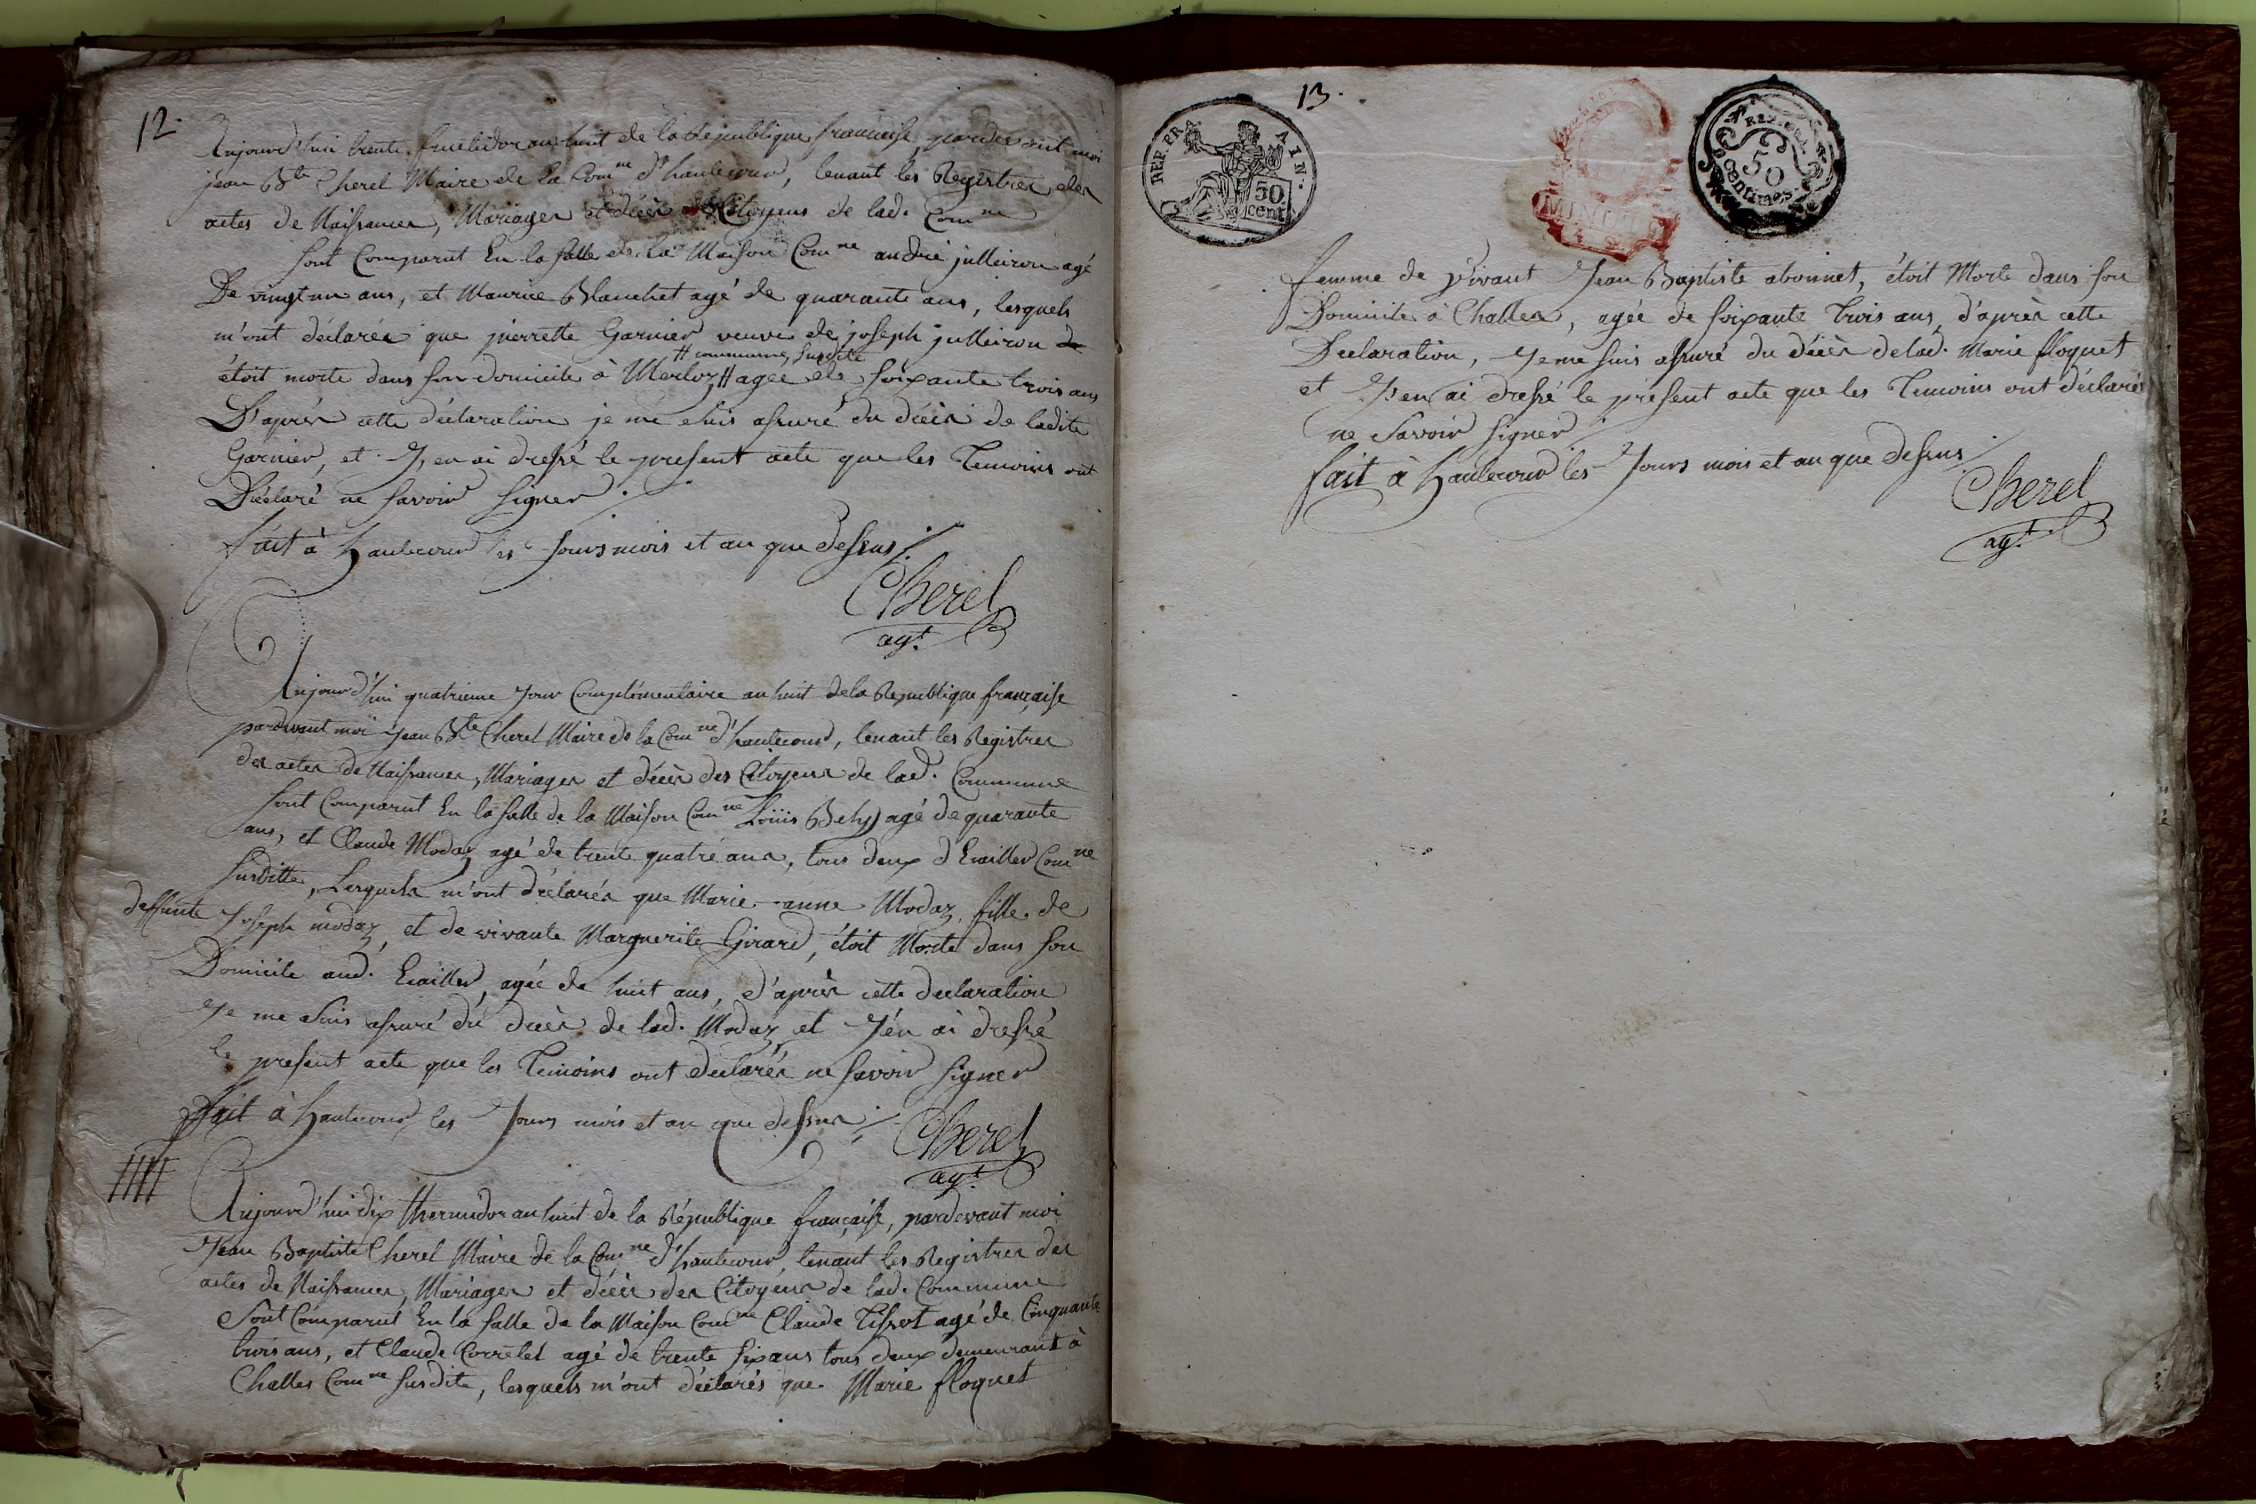 12.
Aujourd'hui trente fructidor an huit de la République française, pardevant moi
jean Bte Cherel Maire de la Comne d'hautecour, tenant les Registres des
actes de Naissances, Mariages et décès des Citoyens de lad. Comne
sont Comparut En la salle de la Maison Comne andré julleiron agé
De vingt un ans, et Maurice Blanchet agé de quarante ans, lesquels
m'ont déclarés que pierrette Garnier veuve de joseph julleiron
# commune susdite
étoit morte dans son domicile à Merloz # agée de soixante trois ans
D'après cette déclaration je me suis assuré du décès de ladite
Garnier, et J'en ai dressé le present acte que les Temoins ont
Déclaré ne savoir signer.
fait à hautecour les Jours mois et an que dessus
Cherel
agt.
Aujourd'hui quatrieme Jour Complémentaire an huit de la République française
pardevant moi Jean Bte Cherel Maire de la Comne d'hautecour, tenant les Registres
des actes de Naissances, Mariages et décès des Citoyens de lad. Commune
sont Comparut En la salle de la Maison Comne Louis Bely agé de quarante
ans, et Claude Modaz agé de trente quatre ans, tous deux d'Evailler Comne
susditte, Lesquels m'ont déclarés que Marie-anne Modaz fille de
deffunte Joseph modaz, et de vivante Marguerite Girard, étoit Morte dans son
Domicile aud. Evailler, agée de huit ans, d'après cette declaration
Je me suis assuré du decès de lad. Modaz et J'en ai dressé
le present acte que les Temoins ont declarés ne savoir signer
fait à hautecour les Jours mois et an que dessus
Cherel
agt.
Aujourd'hui dix thermidor an huit de la République française, pardevant moi
Jean Baptiste Cherel Maire de la Comne d'hautecour, tenant les Registres des
actes de Naissances, Mariages et décès des Citoyens de lad. Commune
Sont Comparut En la salle de la Maison Comne Claude Tissot agé de Cinquante
trois ans, et Claude Correlet agé de trente six ans tous deux demeurant à
Challes Comne susdite, lesquels m'ont déclarés que Marie floquet
13.
REP. FRA
AIN.
50
cent
REP. FR
50
centimes
femme de vivant Jean Baptiste abonnet, étoit Morte dans son
Domicile à Challes, agée de soixante trois ans, d'après cette
Declaration, Je me suis assuré du décès de lad. Marie floquet
et J'en ai dressé le présent acte que les Temoins ont déclarés
ne savoir signer
fait à hautecour les Jours mois et an que dessus
Cherel
agt.